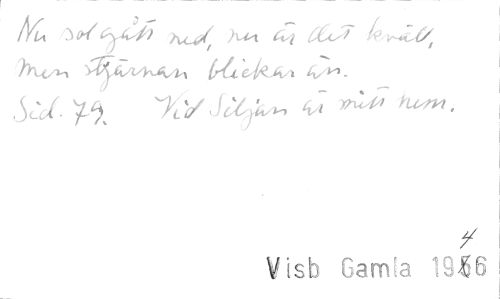 Nu sol gått ned, nu är det kväll,
men stjärnan blickar än.
Sid. 79. Vid Siljan är mitt hem.
4
Visb Gamla 1966